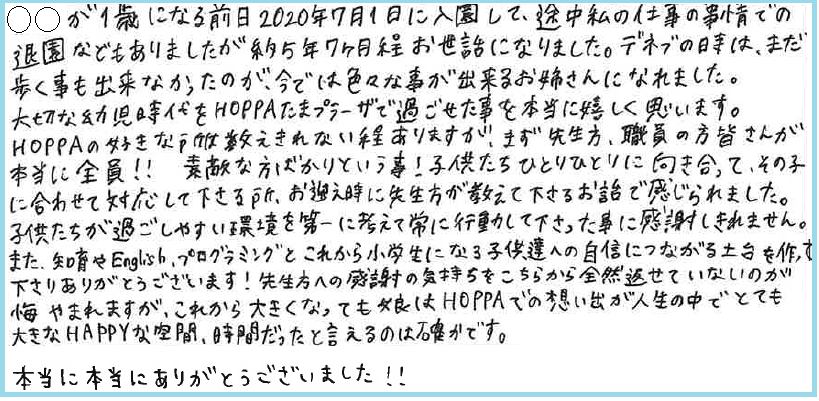 ○○が1歳になる前日2020年7月1日に入園して、途中私の仕事の事情での
退園などもありましたが約5年7ヶ月程お世話になりました。デネブの時は、まだ
歩く事も出来なかったのが、今では色々な事が出来るお姉さんになれました。
大切な幼児時代をHOPPAたまプラーザで過ごせた事を本当に嬉しく思います。
HOPPAの好きな所は数えきれない程ありますが、まず先生方、職員の方皆さんが
本当に全員!! 素敵な方ばかりという事!子供たちひとりひとりに向き合って、その子
に合わせて対応して下さる所、お迎え時に先生方が教えて下さるお話で感じられました。
子供たちが過ごしやすい環境を第一に考えて常に行動して下さった事に感謝しきれません。
また、知育やEnglish、プログラミングとこれから小学生になる子供達への自信につながる土台を作って
下さりありがとうございます!先生方への感謝の気持ちをこちらから全然返せていないのが
悔やまれますが、これから大きくなっても娘はHOPPAでの想い出が人生の中でとても
大きなHAPPYな空間、時間だったと言えるのは確かです。
本当に本当にありがとうございました!!